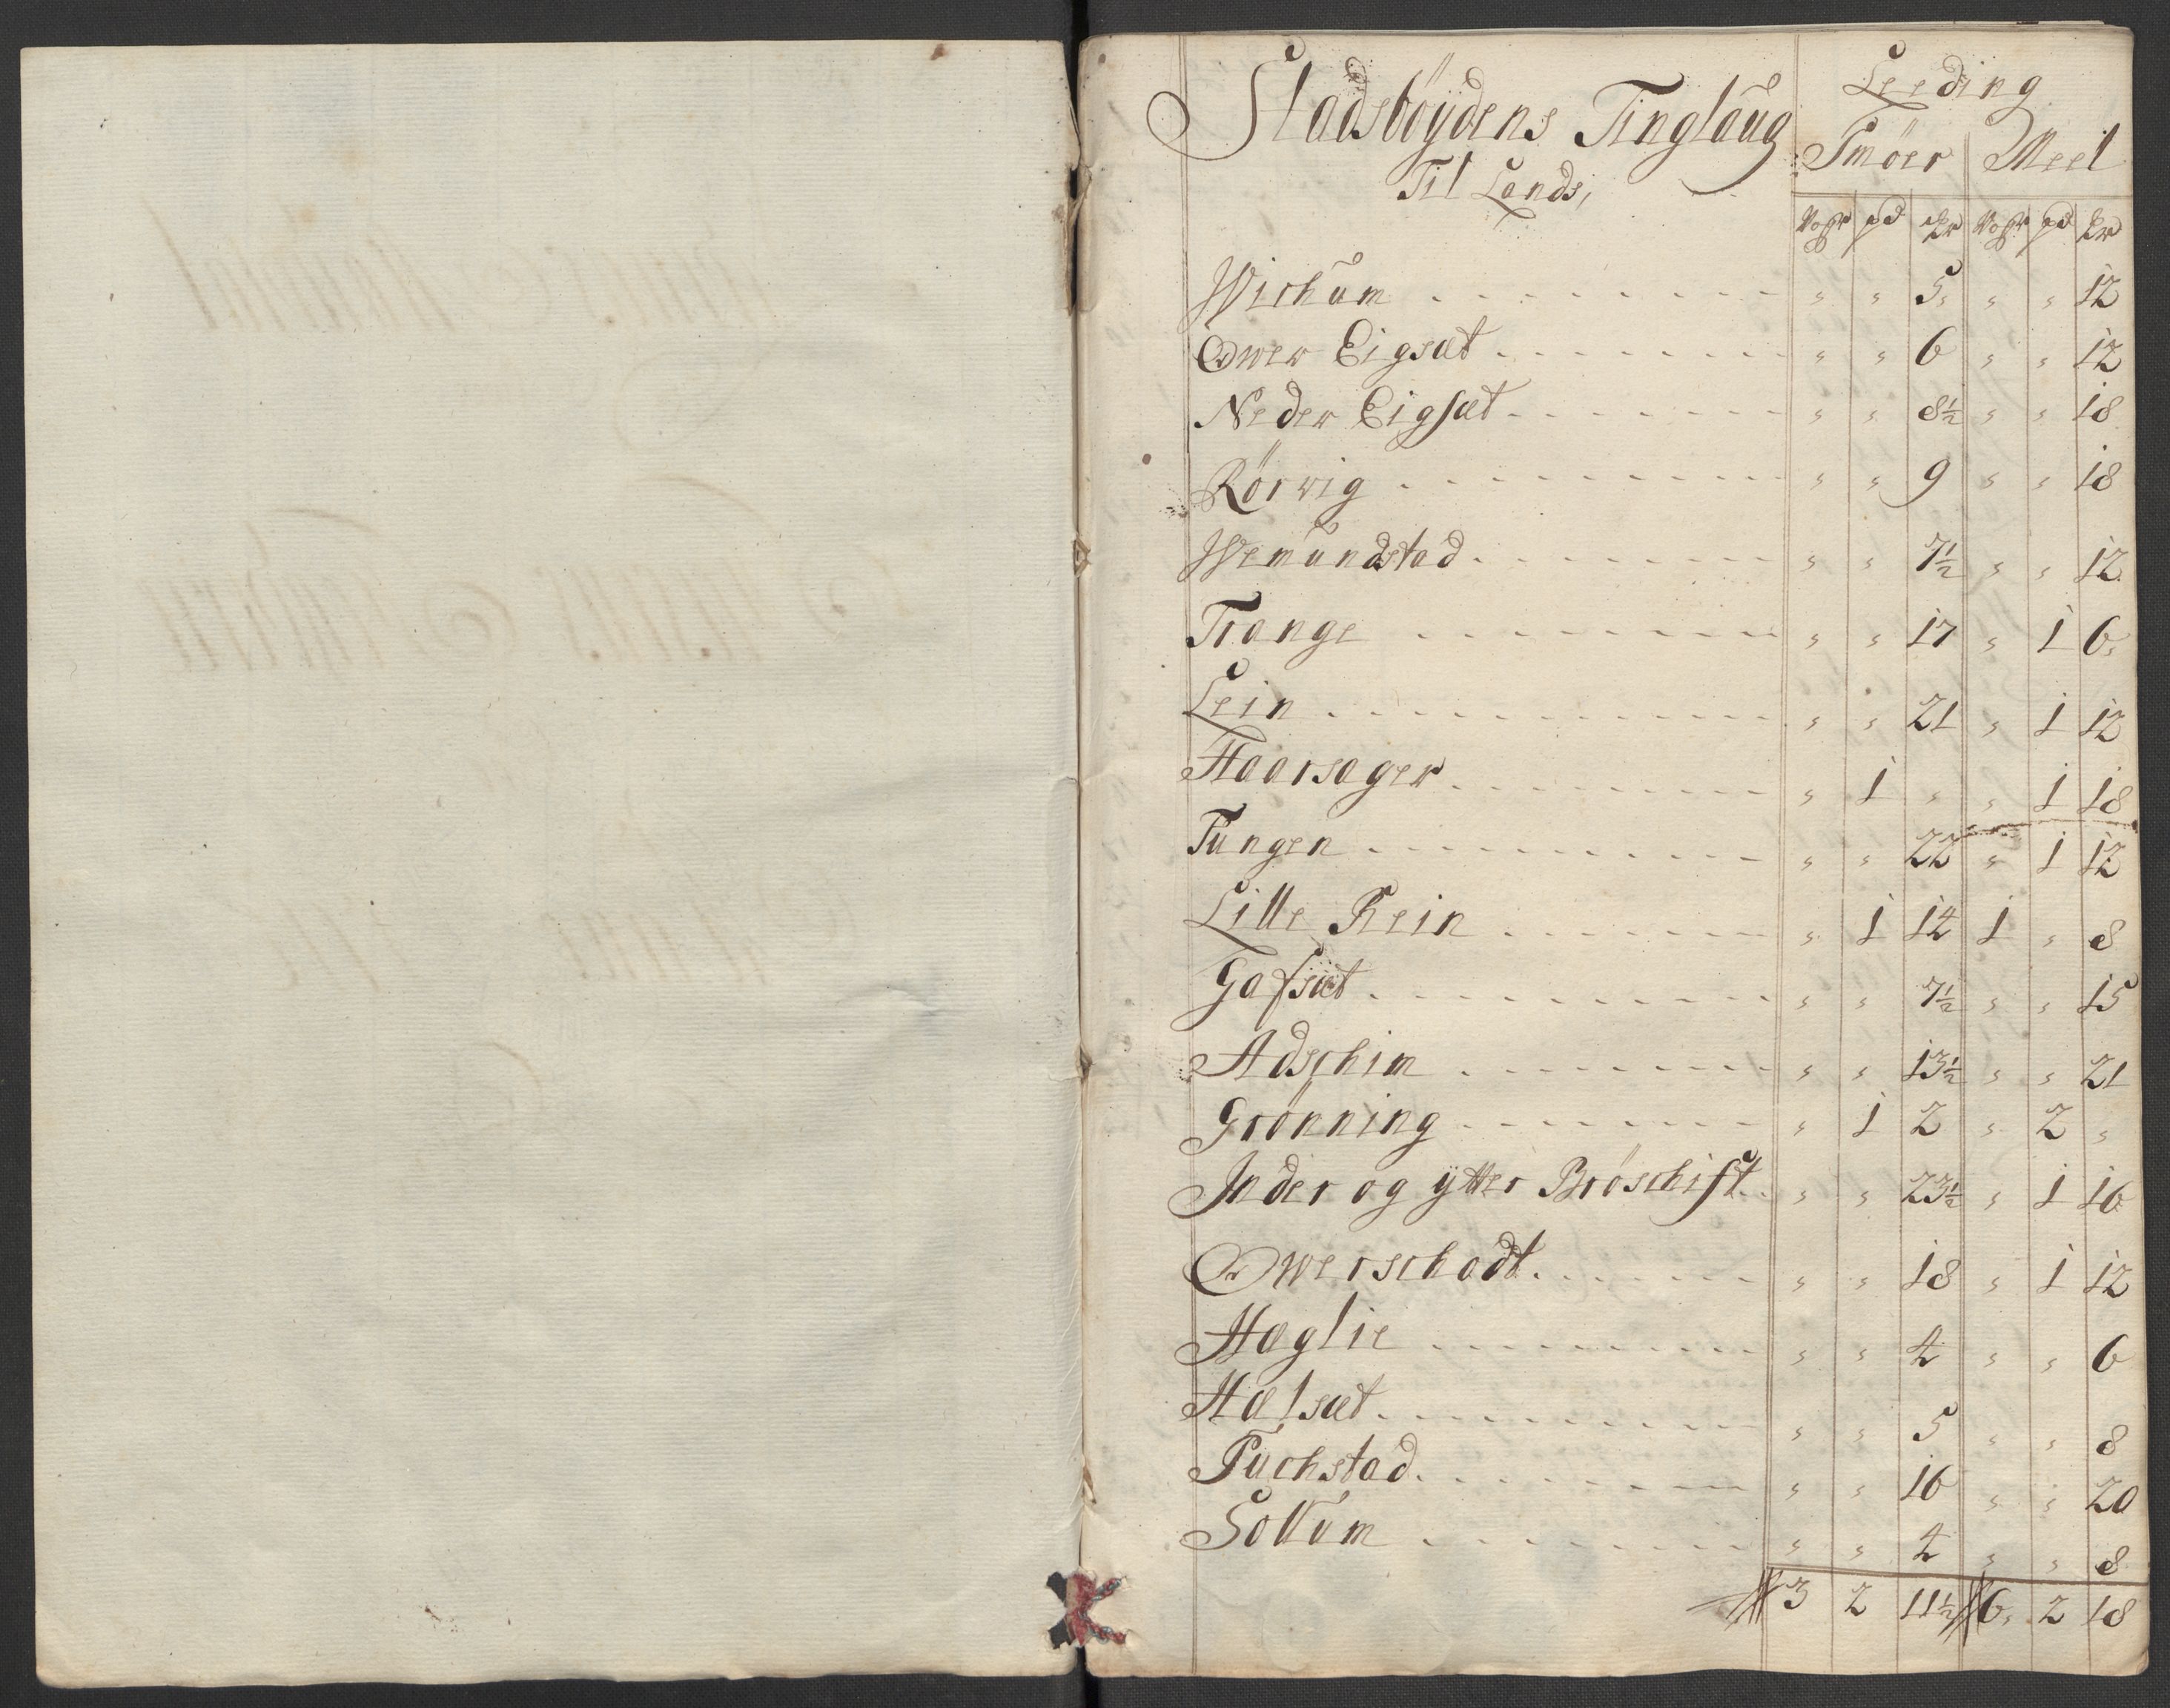 Stadsbøÿdens Tinglaug
Til Lands,
Leeding
Smöer Meel
Wogr pd Mr Wogr pd Mr
Wichum " " 5, " " 12
Ower Eigsæt " " 6 " " 12
Neder Eigsæt " " 8½ " " 18
Rörvig " " 9 " " 18
Wemundstad " " 7½ " " 12
Trange " " 17 " 1 6,
Lein " " 21 " 1 12
Haarsager " 1 " " 1 18
Tungen " " 22 " 1 12
Lille Rein " 1 14 1 " 8
Gafsæt " " 7½ " " 15
Adschim " " 13½ " " 21
Grönning " 1 2 " 2 "
Inder og ÿtter Bröschift " " 23½ " 1 16
Owerschodt " " 18 " 1 12
Haglie " " 4 " " 6
Halsæt " " 5 " " 8
Fuchstad " " 16 " " 20
Sollum " " 4 " " 8
3 2 11½ 6, 2 18